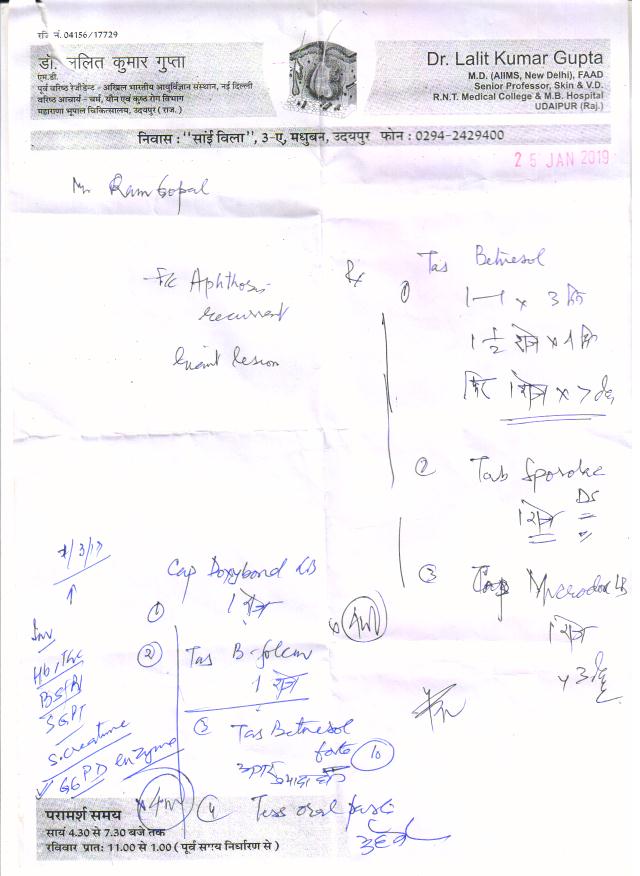 रजि नं. 04156/17729
डॉ. ललित कुमार गुप्ता
एम.डी.
पूर्व वरिष्ठ रेजीडेन्ट - अखिल भारतीय आयुर्विज्ञान संस्थान, नई दिल्ली
वरिष्ठ आचार्य - चर्म, यौन एवं कुष्ठ रोग विभाग
महाराणा भूपाल चिकित्सालय, उदयपुर (राज.)
Dr. Lalit Kumar Gupta
M.D. (AIIMS, New Delhi), FAAD
Senior Professor, Skin & V.D.
R.N.T. Medical College & M.B. Hospital
UDAIPUR (Raj.)
निवास : "साई विला", 3-ए, मधुबन, उदयपुर फोन : 0294-2429400
25 JAN 2019
Mr Ram Gopal
F/c Aphthosis
recurrent
Giant lesion
Rx
① Tas Betnesol
1—1 x 3 दिन
1 1/2 रोज x 1 दिन
फिर 1 रोज x 7 day
② Tab
1 रोज
DS
③ Microdox LB
1 रोज
Cap Doxybond LB
① 1 रोज
x 4W
② Tas B-folcin
1 रोज
③ Tas Betnesol
forte 10
④ Tess oral paste
x 4W
Inv
Hb, TLC
BSR
SGPT
S. Creatinine
G6PD enzyme
परामर्श समय
सायं 4.30 से 7.30 बजे तक
रविवार प्रात: 11.00 से 1.00 ( पूर्व समय निर्धारण से )